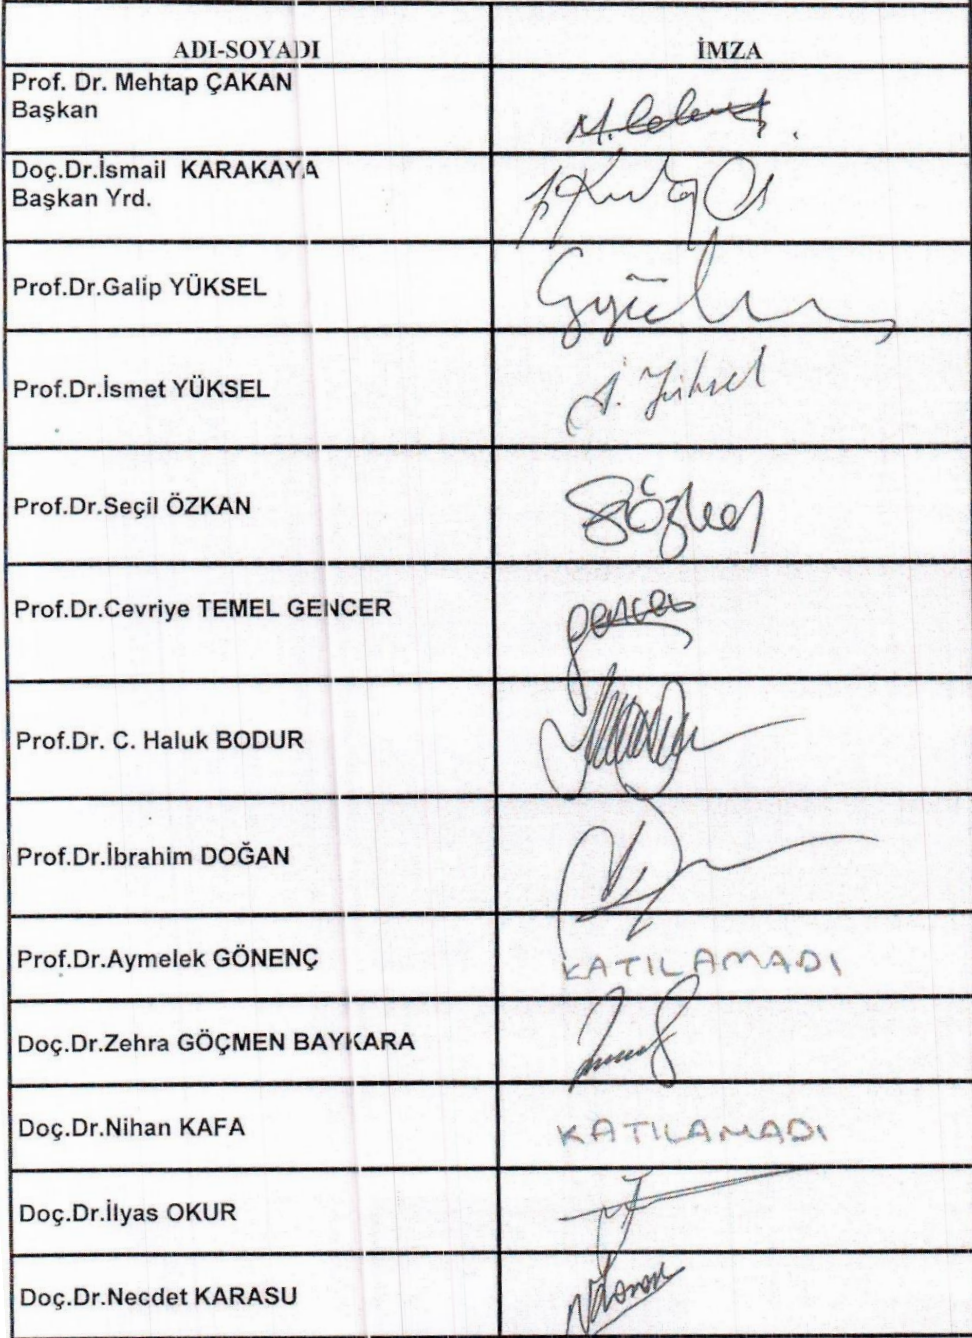 ADI-SOYADI İMZA
Prof. Dr. Mehtap ÇAKAN
Başkan
Doç.Dr.İsmail KARAKAYA
Başkan Yrd.
Prof.Dr.Galip YÜKSEL
Prof.Dr.İsmet YÜKSEL
Prof.Dr.Seçil ÖZKAN
Prof.Dr.Cevriye TEMEL GENCER
Prof.Dr. C. Haluk BODUR
Prof.Dr.İbrahim DOĞAN
Prof.Dr.Aymelek GÖNENÇ KATILAMADI
Doç.Dr.Zehra GÖÇMEN BAYKARA
Doç.Dr.Nihan KAFA KATILAMADI
Doç.Dr.İlyas OKUR
Doç.Dr.Necdet KARASU